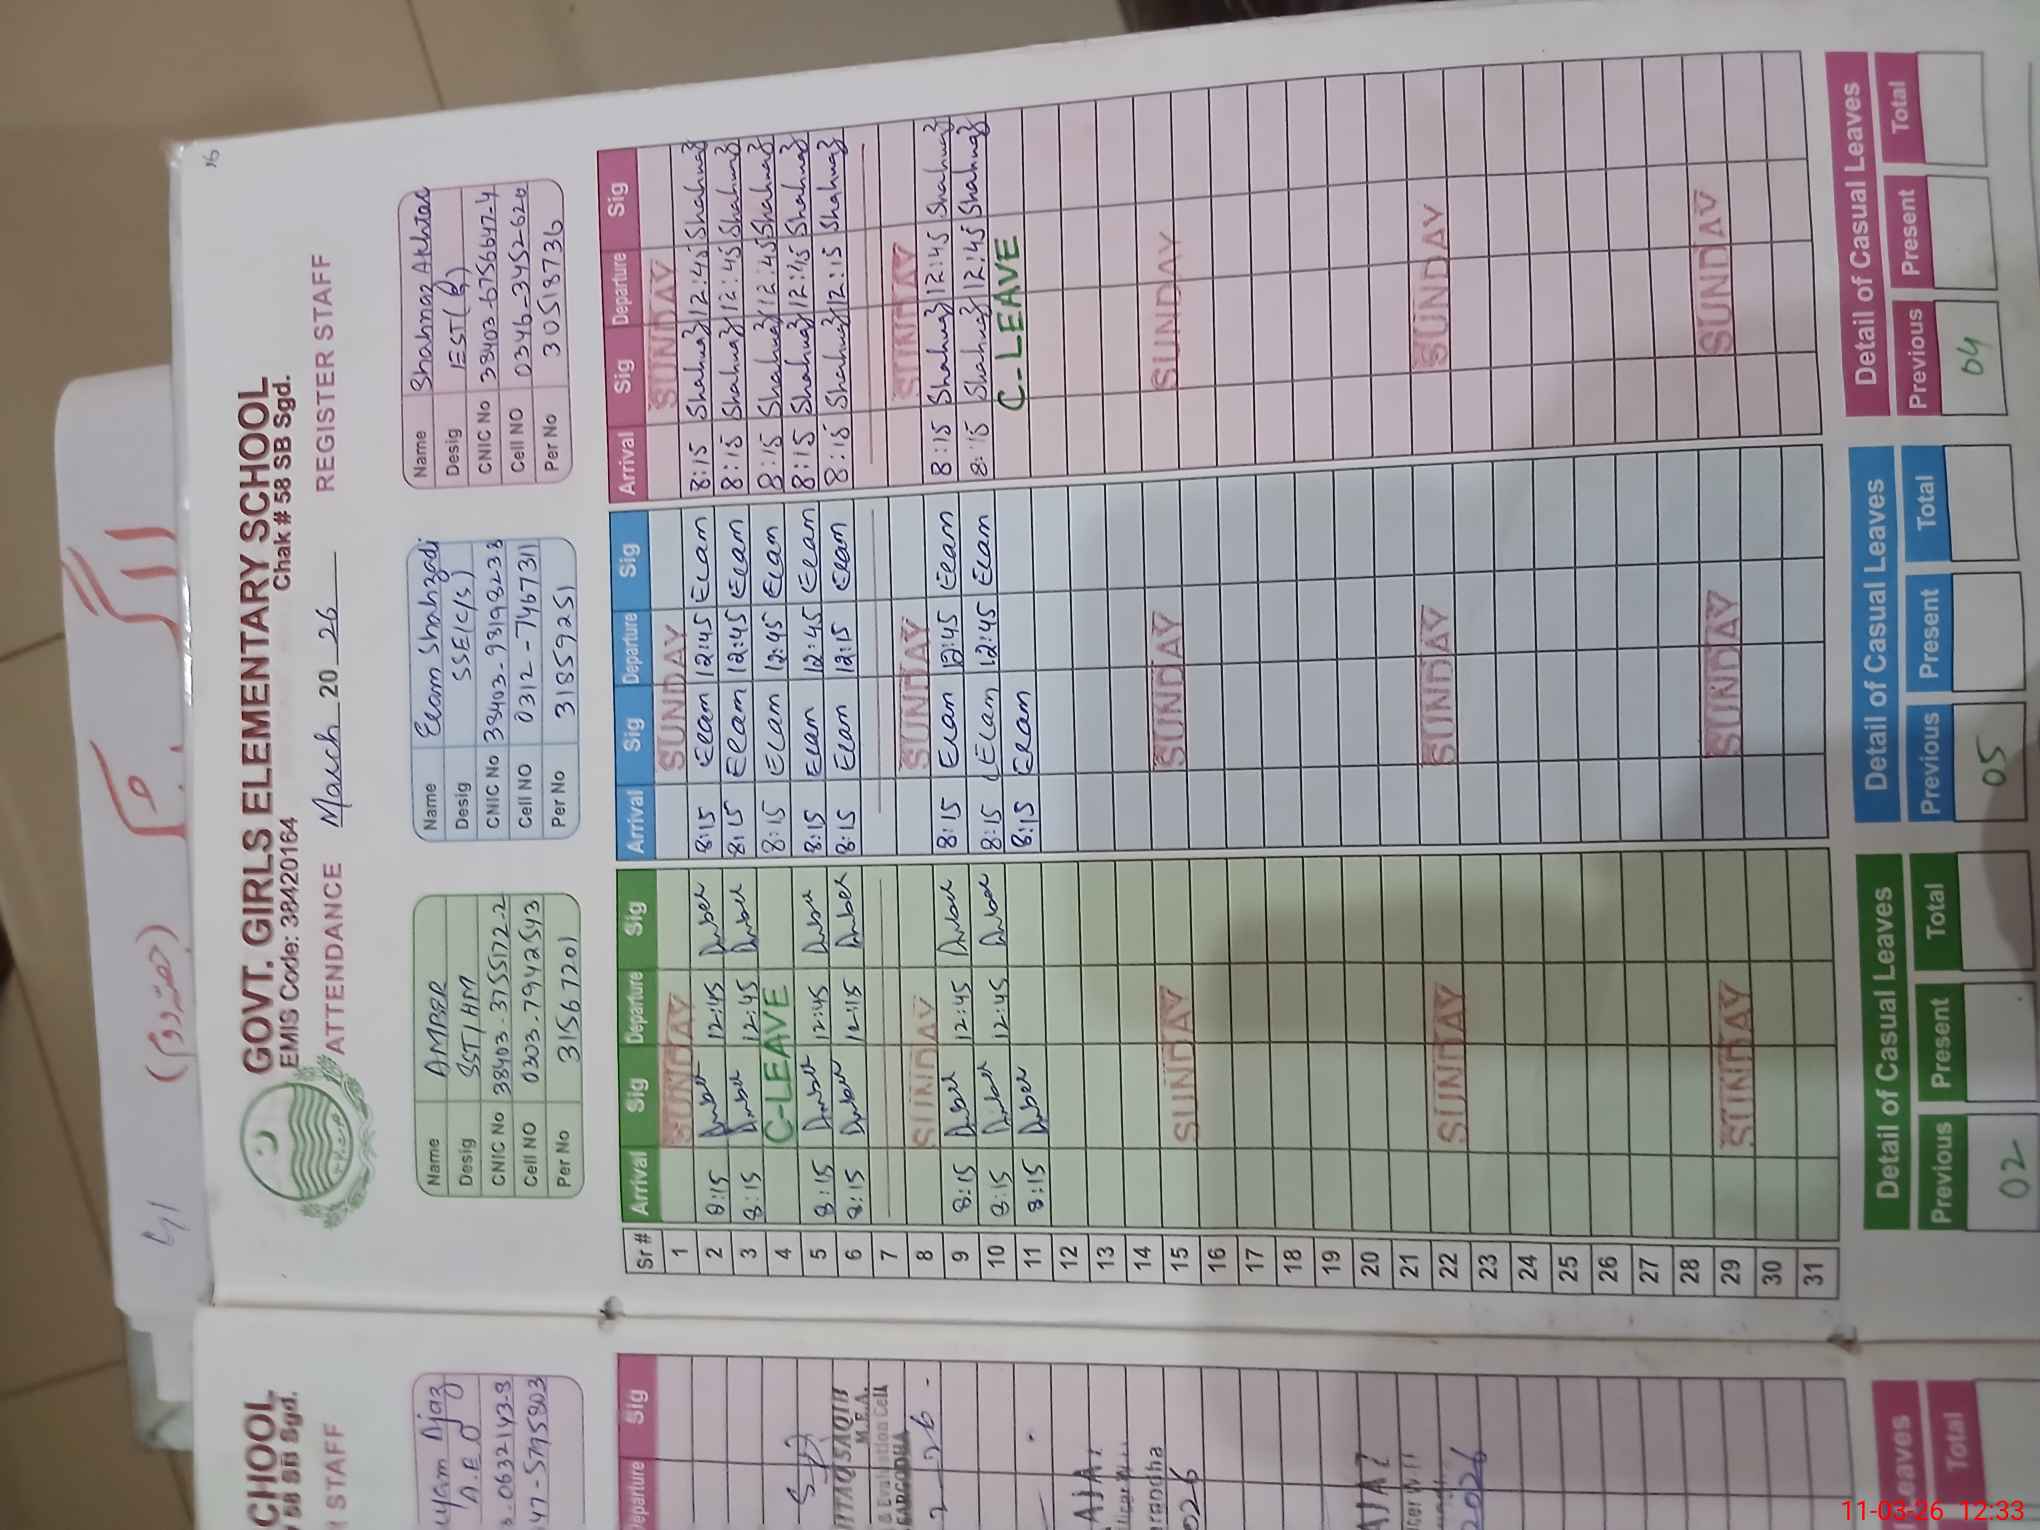 16
GOVT. GIRLS ELEMENTARY SCHOOL
EMIS Code: 38420164 Chak # 58 SB Sgd.
ATTENDANCE March 2026 REGISTER STAFF
Name AMBER
Desig SST/HM
CNIC No 38403-3755172-2
Cell NO 0303-7942543
Per No 31567201
Name Ecam Shahzadi
Desig SSE(C/S)
CNIC No 38403-9319823-8
Cell NO 0312-7467311
Per No 31859251
Name Shahnaz Akhtar
Desig EST(B)
CNIC No 38403-6756647-4
Cell NO 0346-3452620
Per No 30518736
Sr # Arrival Sig Departure Sig Arrival Sig Departure Sig Arrival Sig Departure Sig
1 SUNDAY SUNDAY SUNDAY
2 8:15 Amber 12:45 Amber 8:15 Ecam 12:45 Ecam 8:15 Shahnaz 12:45 Shahnaz
3 8:15 Amber 12:45 Amber 8:15 Ecam 12:45 Ecam 8:15 Shahnaz 12:45 Shahnaz
4 C-LEAVE 8:15 Ecam 12:45 Ecam 8:15 Shahnaz 12:45 Shahnaz
5 8:15 Amber 12:45 Amber 8:15 Ecam 12:45 Ecam 8:15 Shahnaz 12:45 Shahnaz
6 8:15 Amber 12:15 Amber 8:15 Ecam 12:15 Ecam 8:15 Shahnaz 12:15 Shahnaz
7
8 SUNDAY SUNDAY SUNDAY
9 8:15 Amber 12:45 Amber 8:15 Ecam 12:45 Ecam 8:15 Shahnaz 12:45 Shahnaz
10 8:15 Amber 12:45 Amber 8:15 Ecam 12:45 Ecam 8:15 Shahnaz 12:45 Shahnaz
11 8:15 Amber 8:15 Ecam C-LEAVE
12
13
14
15 SUNDAY SUNDAY SUNDAY
16
17
18
19
20
21
22 SUNDAY SUNDAY SUNDAY
23
24
25
26
27
28
29 SUNDAY SUNDAY SUNDAY
30
31
Detail of Casual Leaves Detail of Casual Leaves Detail of Casual Leaves
Previous Present Total Previous Present Total Previous Present Total
02 05 04
CHOOL
58 SB Sgd.
STAFF
Departure Sig
& Evaluation Cell
M.E.A.
2026
2026
Leaves
Total
11-03-26 12:33